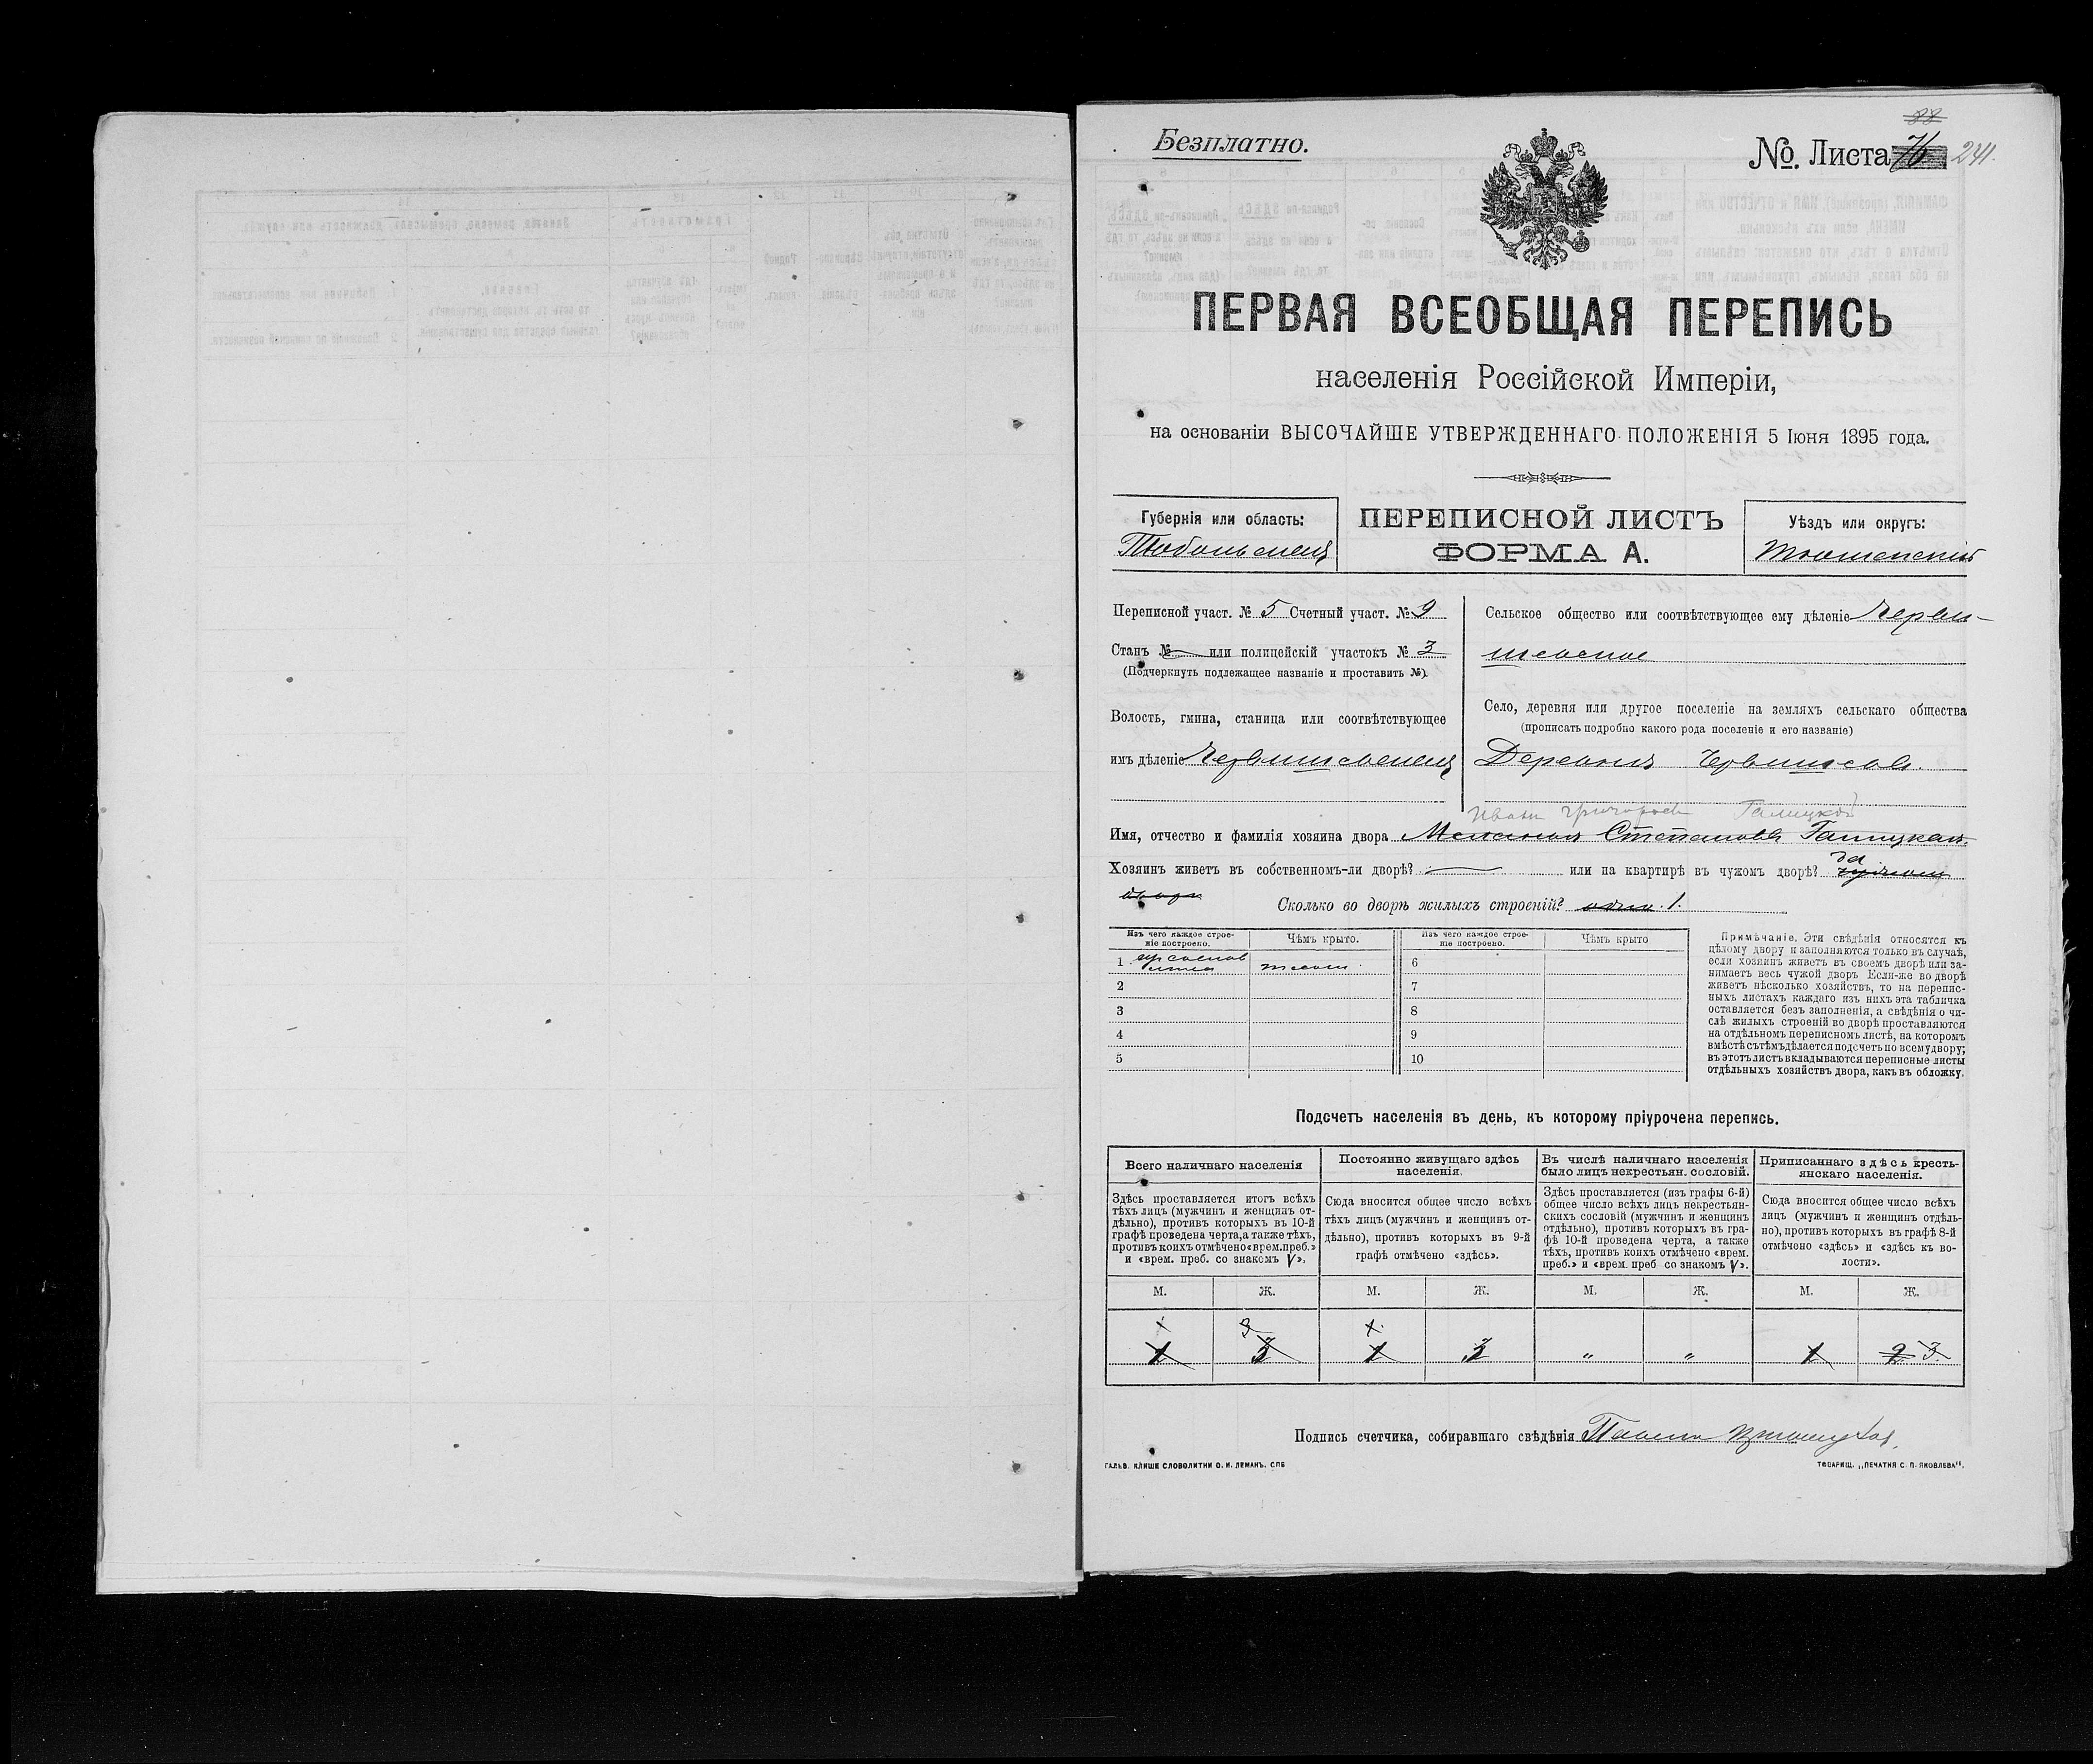 Безплатно.
88
№. Листа 76 241.
ПЕРВАЯ ВСЕОБЩАЯ ПЕРЕПИСЬ
населенія Россійской Имперіи,
на основаніи ВЫСОЧАЙШЕ УТВЕРЖДЕННАГО ПОЛОЖЕНІЯ 5 Іюня 1895 года.
Губернія или область:
Тобольская
ПЕРЕПИСНОЙ ЛИСТЪ
ФОРМА А.
Уѣздъ или округъ:
Тюменскій
Переписной участ. № 5 Счетный участ. № 9
Станъ № — или полицейскій участокъ № 3
(Подчеркнуть подлежащее названіе и проставить №).
Волость, гмина, станица или соотвѣтствующее
имъ дѣленіе Червишевская
Сельское общество или соотвѣтствующее ему дѣленіе Черви-
шевское
Село, деревня или другое поселеніе на земляхъ сельскаго общества
(прописать подробно какого рода поселеніе и его названіе)
Деревня Червишева.
Иванъ Григорьевъ Галицкой
Имя, отчество и фамилія хозяина двора Степанова Галицкая.
Хозяинъ живетъ въ собственномъ-ли дворѣ? — или на квартирѣ въ чужомъ дворѣ? да
Сколько во дворѣ жилыхъ строеній? одно. 1.
Изъ чего каждое строе-
ніе построено.
Чѣмъ крыто.
Изъ чего каждое строе-
ніе построено.
Чѣмъ крыто
1 тесомъ. 6
2 7
3 8
4 9
5 10
Примѣчаніе. Эти свѣдѣнія относятся къ
цѣлому двору и заполняются только въ случаѣ,
если хозяинъ живетъ въ своемъ дворѣ или за-
нимаетъ весь чужой дворъ Если-же во дворѣ
живетъ нѣсколько хозяйствъ, то на перепис-
ныхъ листахъ каждаго изъ нихъ эта табличка
оставляется безъ заполненія, а свѣдѣнія о чи-
слѣ жилыхъ строеній во дворѣ проставляются
на отдѣльномъ переписномъ листѣ, на которомъ
вмѣстѣ съ тѣмъ дѣлается подсчетъ по всему двору;
въ этотъ листъ вкладываются переписные листы
отдѣльныхъ хозяйствъ двора, какъ въ обложку.
Подсчетъ населенія въ день, къ которому пріурочена перепись.
Всего наличнаго населенія
Здѣсь проставляется итогъ всѣхъ
тѣхъ лицъ (мужчинъ и женщинъ от-
дѣльно), противъ которыхъ въ 10-й
графѣ проведена черта, а также тѣхъ,
противъ коихъ отмѣчено «врем. преб.»
и «врем. преб. со знакомъ V».
Постоянно живущаго здѣсь
населенія.
Сюда вносится общее число всѣхъ
тѣхъ лицъ (мужчинъ и женщинъ от-
дѣльно), противъ которыхъ въ 9-й
графѣ отмѣчено «здѣсь».
Въ числѣ наличнаго населенія
было лицъ некрестьян. сословій.
Здѣсь проставляется (изъ графы 6-й)
общее число всѣхъ лицъ некрестьян-
скихъ сословій (мужчинъ и женщинъ
отдѣльно), противъ которыхъ въ гра-
фѣ 10-й проведена черта, а также
тѣхъ, противъ коихъ отмѣчено «врем.
преб.» и «врем. преб со знакомъ V».
Приписаннаго здѣсь кресть-
янскаго населенія.
Сюда вносится общее число всѣхъ
лицъ (мужчинъ и женщинъ отдѣль-
но), противъ которыхъ въ графѣ 8-й
отмѣчено «здѣсь» и «здѣсь къ во-
лости».
М. Ж. М. Ж. М. Ж. М. Ж.
1 3 1 3 " " 1 2 3.
Подпись счетчика, собиравшаго свѣдѣнія
ГАЛЬВ. КЛИШЕ СЛОВОЛИТНИ О. И. ЛЕМАНЪ. СПБ
ТОВАРИЩ. „ПЕЧАТНЯ С. П. ЯКОВЛЕВА".